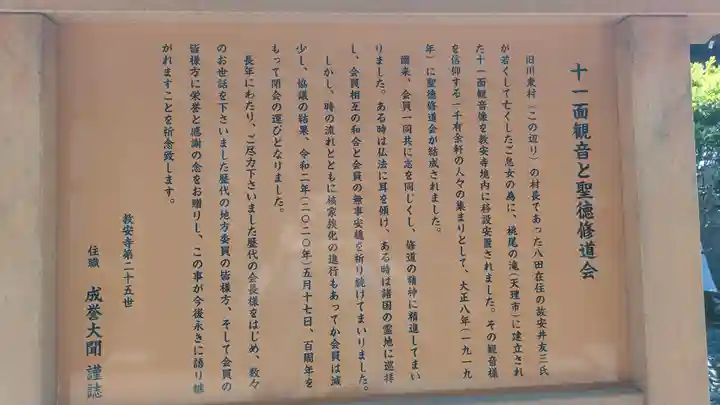 十一面観音と聖徳修道会
旧川東村(この辺り)の村長であった八田在住の故安井友三氏
が若くして亡くしたご息女の為に、桃尾の滝(天理市)に建立され
た十一面観音像を教安寺境内に移設安置されました。その観音様
を信仰する一千有余軒の人々の集まりとして、大正八年(一九一九
年)に聖徳修道会が結成されました。
爾来、会員一同共に志を同じくし、修道の精神に精進してまい
りました。ある時は仏法に耳を傾け、ある時は諸国の霊地に巡拝
し、会員相互の和合と会員の無事安穏を祈り続けてまいりました。
しかし、時の流れとともに核家族化の進行もあってか会員は減
少し、協議の結果、令和二年(二〇二〇年)五月十七日、百周年を
もって閉会の運びとなりました。
長年にわたり、ご尽力下さいました歴代の会長様をはじめ、数々
のお世話を下さいました歴代の地方委員の皆様方、そして会員の
皆様方に栄誉と感謝の念をお贈りし、この事が今後永きに語り継
がれますことを祈念致します。
教安寺第二十五世
住職 成誉大聞 謹誌